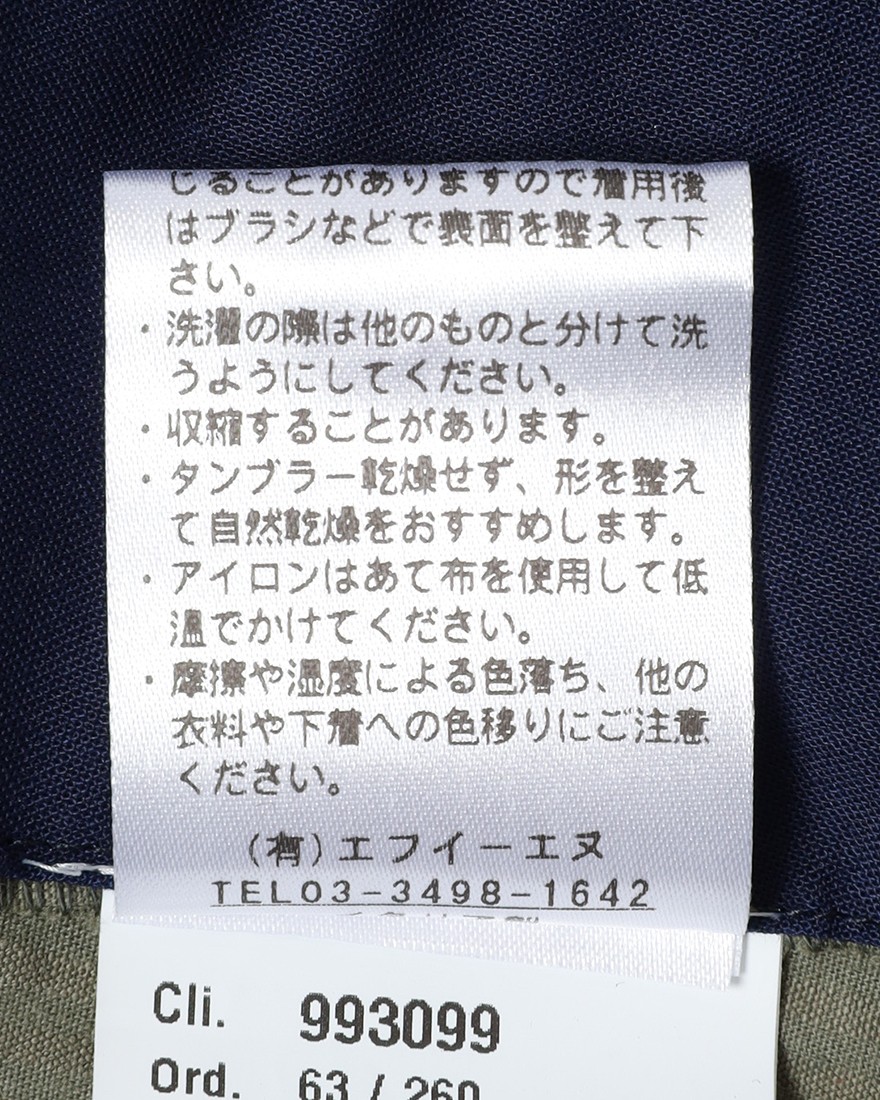 じることがありますので着用後
はブラシなどで表面を整えて下
さい。
・洗濯の際は他のものと分けて洗
うようにしてください。
・収縮することがあります。
・タンブラー乾燥せず、形を整え
て自然乾燥をおすすめします。
・アイロンはあて布を使用して低
温でかけてください。
・摩擦や湿度による色落ち、他の
衣料や下着への色移りにご注意
ください。
(有)エフイーエヌ
TEL03-3498-1642
Cli. 993099
Ord. 63 / 260